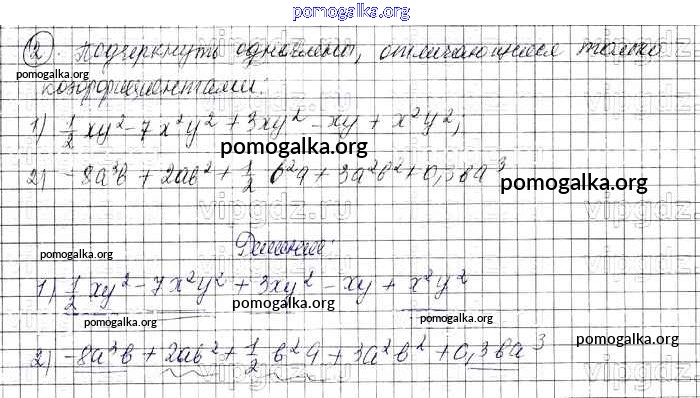 pomogalka.org
2. Подчеркнуть одночлены, отличающиеся только
pomogalka.org
коэффициентами:
1) 1/2 xy² - 7x²y² + 3xy² - xy + x²y²;
pomogalka.org
2) -8a³b + 2ab² + 1/2 b²a + 3a²b² + 0,3ba³
pomogalka.org
vipgdz.ru
Решение:
pomogalka.org
1) 1/2 xy² - 7x²y² + 3xy² - xy + x²y²
pomogalka.org
pomogalka.org pomogalka.org
pomogalka.org
2) -8a³b + 2ab² + 1/2 b²a + 3a²b² + 0,3ba³
pomogalka.org
vipgdz.ru